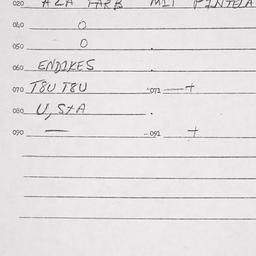 020 AZA TARB MIT PINTELA
040 O
050 O
060 ENDIKES
070 T8U T8U 071 — +
080 U, S+A
090 — 091 +